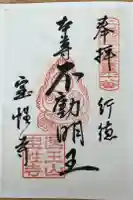 奉拝
行徳
本尊
不動明王
宝性寺